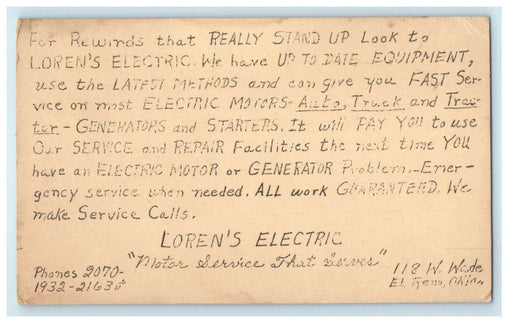 For Rewinds that REALLY STAND UP Look to
LOREN'S ELECTRIC. We have UP TO DATE EQUIPMENT,
use the LATEST METHODS and can give you FAST Ser-
vice on most ELECTRIC MOTORS- Auto, Truck and Trac-
tor - GENERATORS and STARTERS. It will PAY YOU to use
Our SERVICE and REPAIR Facilities the next time YOU
have an ELECTRIC MOTOR or GENERATOR Problem.-Emer-
gency service when needed. ALL work GUARANTEED. We
make Service Calls.
LOREN'S ELECTRIC
"Motor Service That Serves"
Phones 2070-
1932-2163
118 W. Wade
El Reno, Okla.